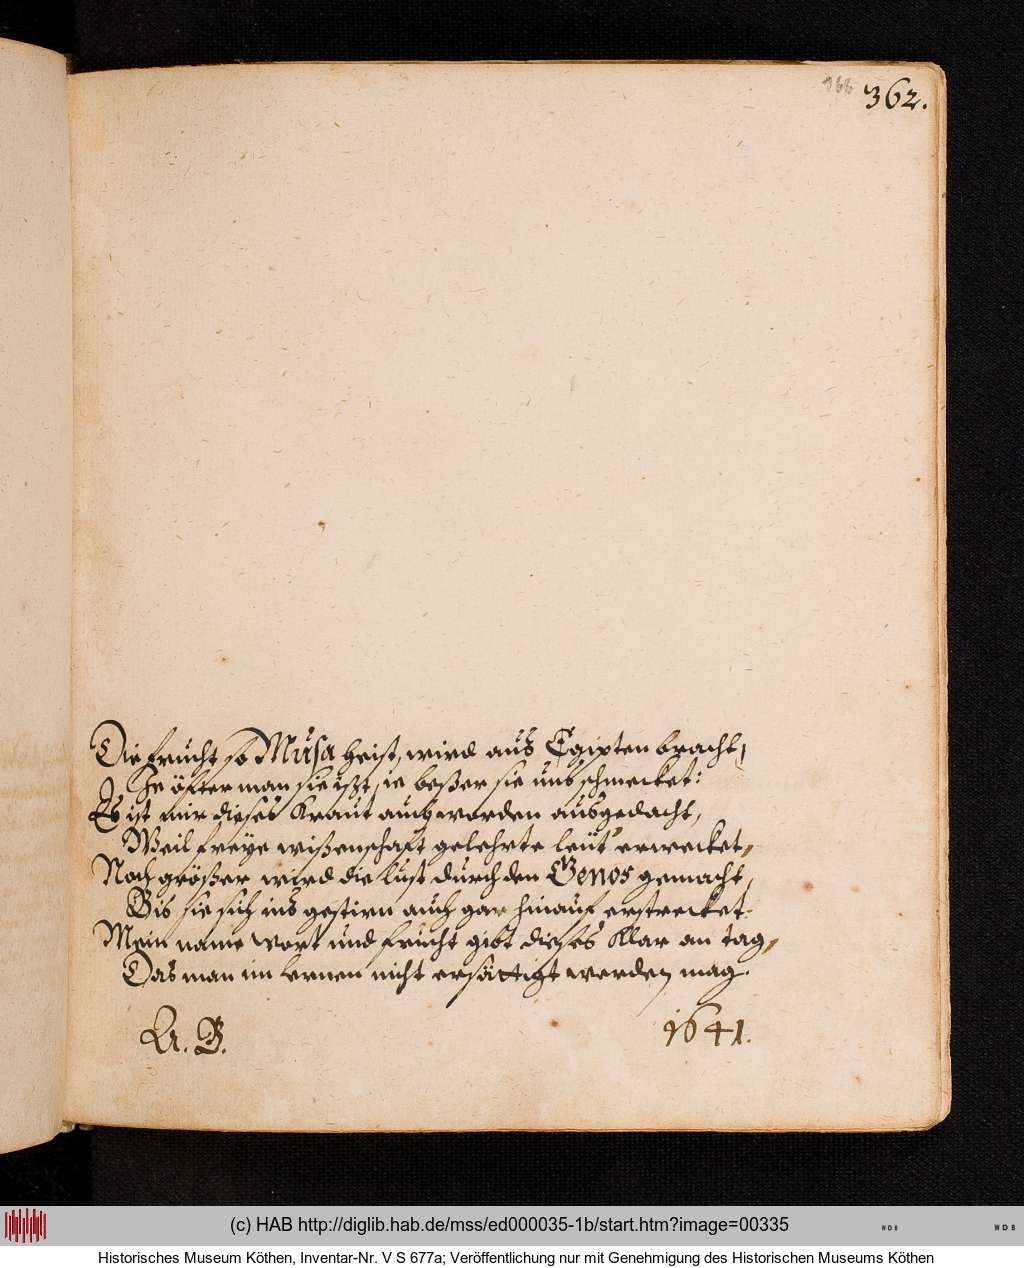 166 362.
Die frucht so Musa heist, wird aus Egipten bracht,
Je öfter man sie ißt, je beßer sie uns schmecket:
Es ist mir dieses Kraut auch worden ausgedacht,
Weil freye wißenschaft gelehrte leüt' erwecket,
Noch größer wird die lust durch den Genos gemacht,
Bis sie sich ins gestirn auch gar hinauf erstrecket.
Mein name wort und frucht gibt dieses klar an tag,
Das man im lernen nicht ersättigt werden mag.
A. B. 1641.
(c) HAB http://diglib.hab.de/mss/ed000035-1b/start.htm?image=00335
WDB WDB
Historisches Museum Köthen, Inventar-Nr. V S 677a; Veröffentlichung nur mit Genehmigung des Historischen Museums Köthen